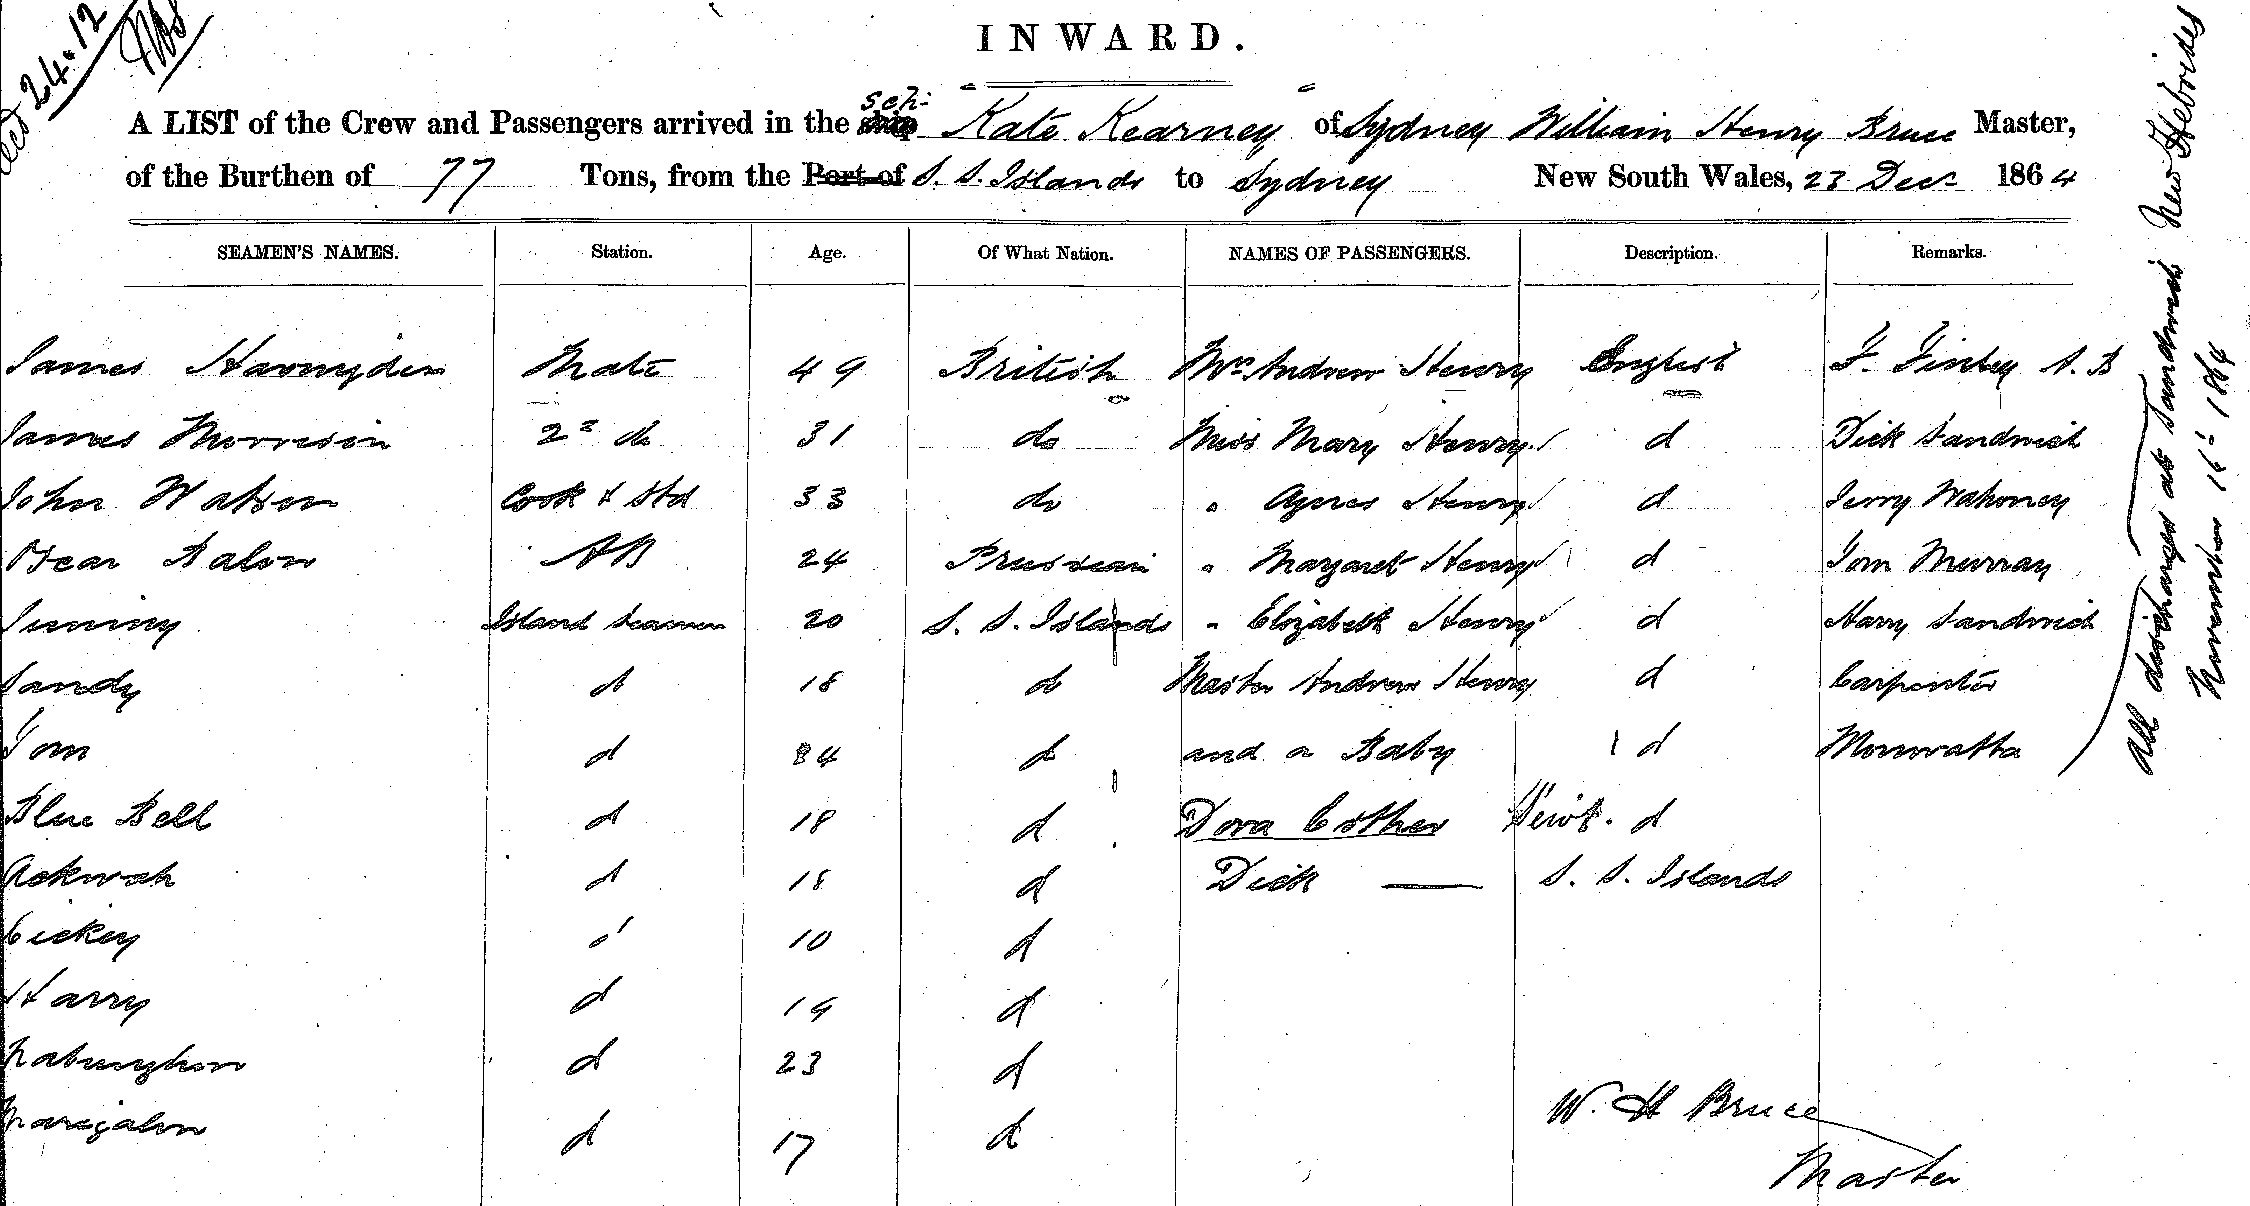 24.12
INWARD.
A LIST of the Crew and Passengers arrived in the sch. Kate Kearney of Sydney William Henry Bruce Master,
of the Burthen of 77 Tons, from the Port of S. S. Islands to Sydney New South Wales, 23 Decr 1864
SEAMEN'S NAMES. Station. Age. Of What Nation. NAMES OF PASSENGERS. Description. Remarks.
James Mate 49 British Mrs. Andrew Henry English F. Finley A. B
James Morrison 2d do 31 do Miss Mary Henry d Dick Sandwich
John Watson Cook & Std 33 do " Agnes Henry d Jerry Mahoney
Oscar AB 24 Prussian " Margaret Henry d Tom Murray
Island Seamen 20 S. S. Islands " Elizabeth Henry d Harry Sandwich
Sandy d 18 d Master Andrew Henry d Carpenter
Tom d 34 d and a Baby d
Blue Bell d 18 d Dora Esther Servt. d
Ackwah d 18 d Dick — S. S. Islands
d 10 d
Harry d 19 d
d 23 d
d 17 d
W. H Bruce
Master
All discharged at Sandwich New Hebrides
November 16th 1864